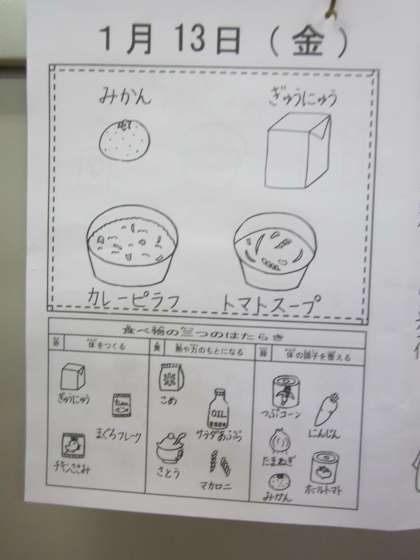 1月 13日 (金)
みかん
ぎゅうにゅう
カレーピラフ
トマトスープ
食べ物の三つのはたらき
赤 体をつくる
黄 熱や力のもとになる
緑 体の調子を整える
ぎゅうにゅう
まぐろフレーク
チキンささみ
こめ
OIL
サラダあぶら
さとう
マカロニ
つぶコーン
にんじん
たまねぎ
みかん
ホールトマト